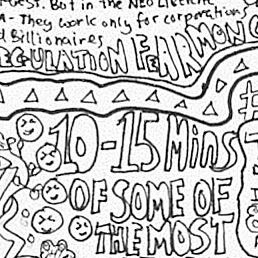 But in the Neo Liberal
A - They work only for corporations
d Billionaires
EGULATION FEARMONG
10-15 Mins
OF SOME OF
THE MOST